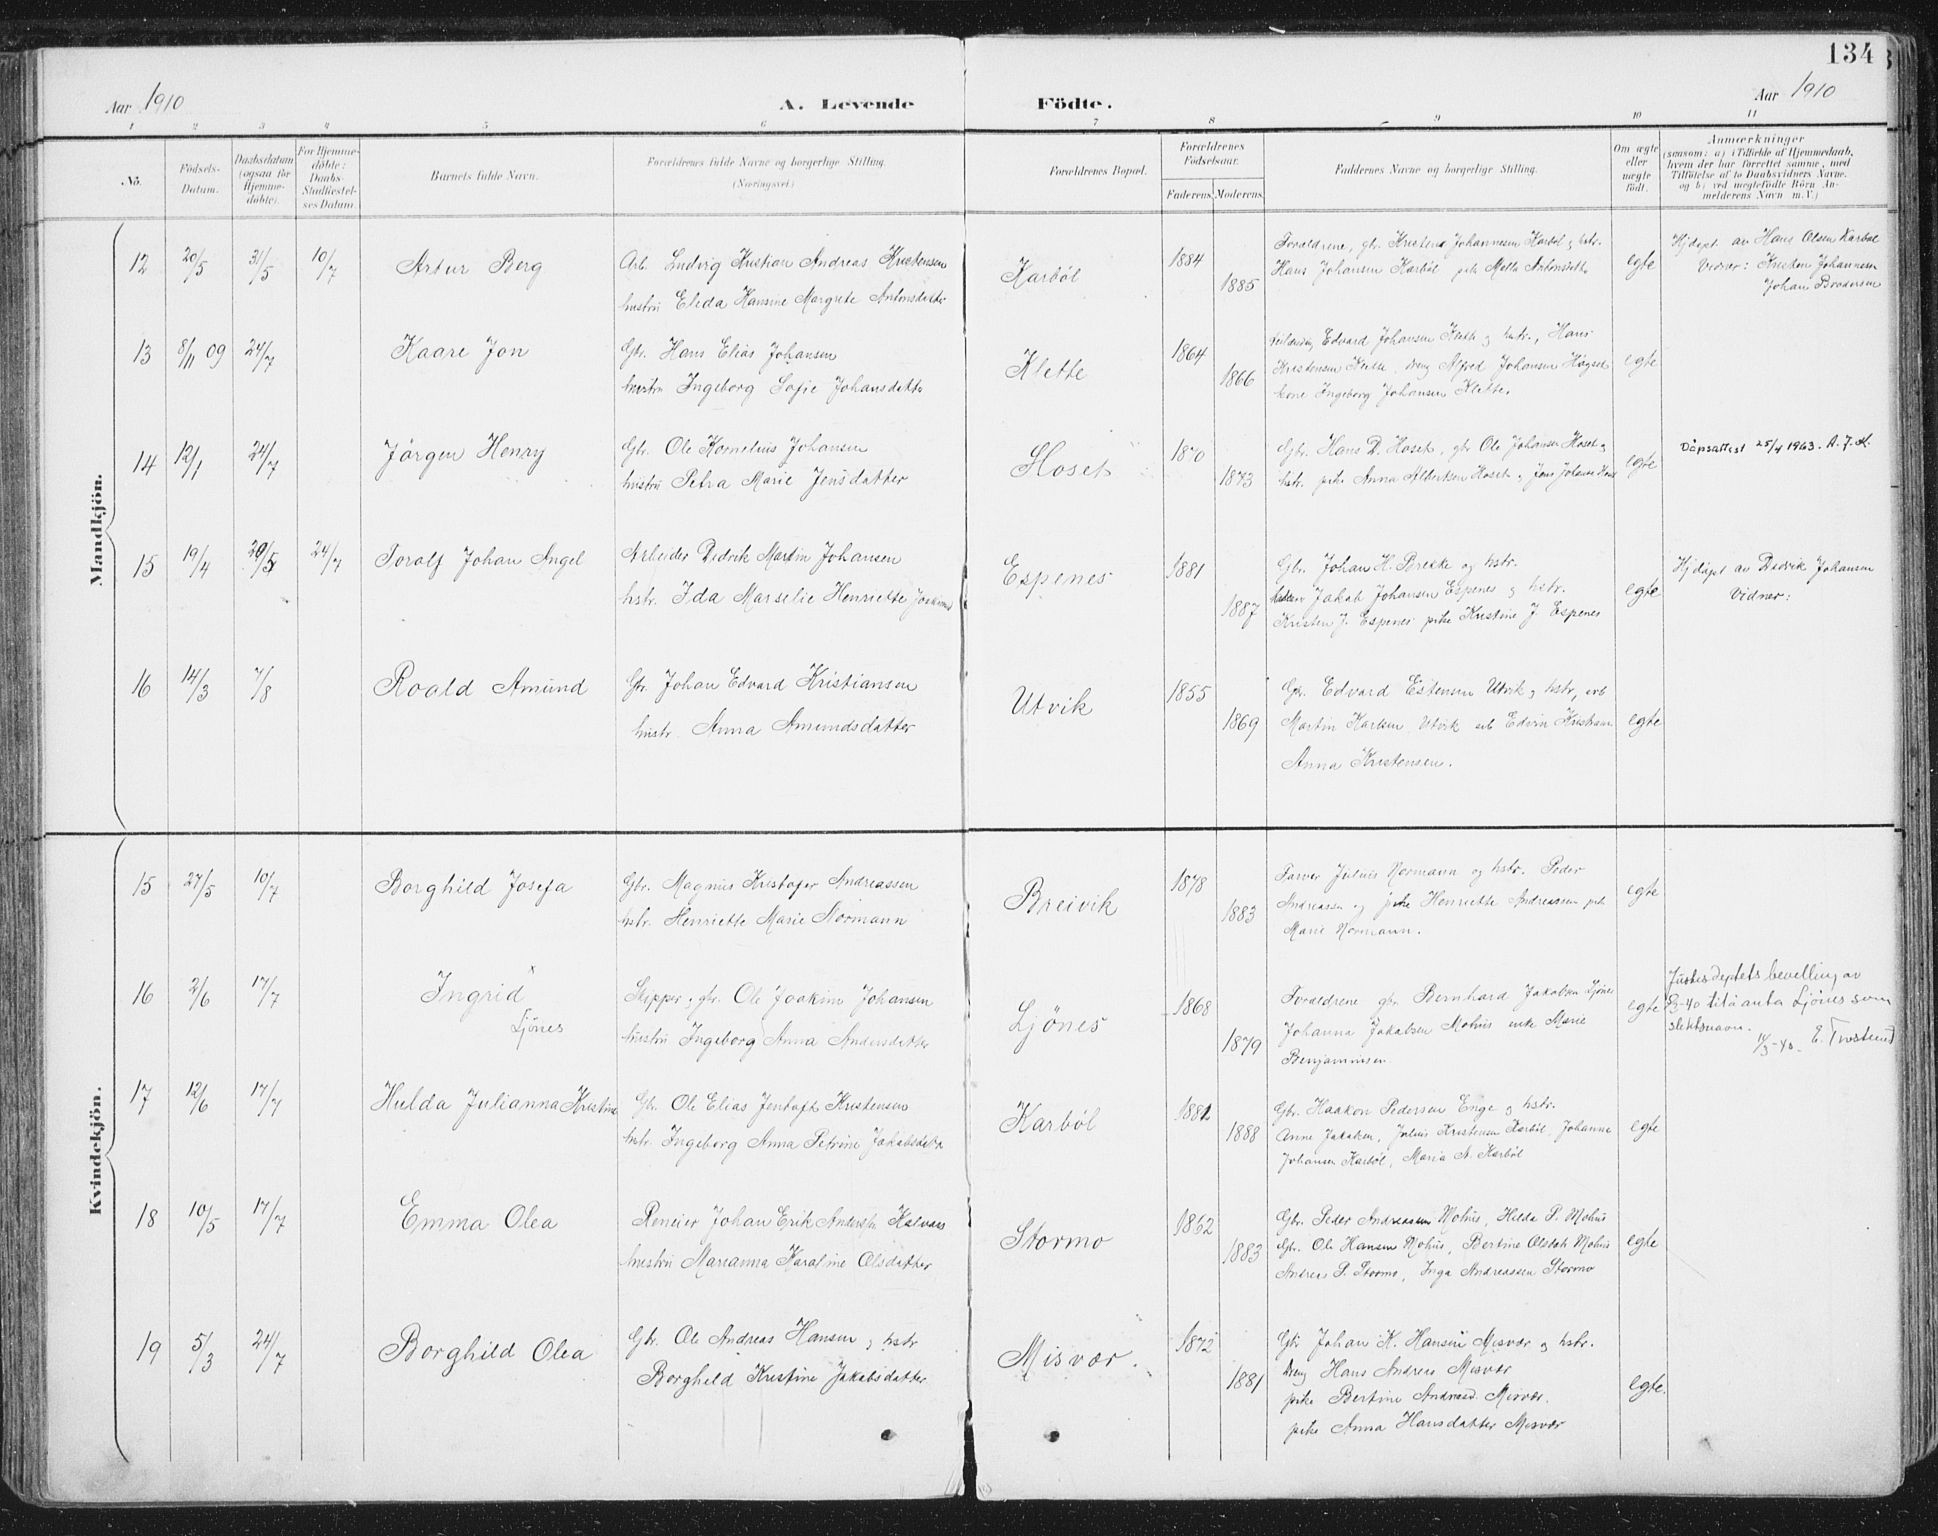 134
Aar 1910
A. Levende Födte.
Aar 1910
1 2 3 4 5 6 7 8 9 10 11
No.
Födsels-Datum.
Daabsdatum (ogsaa for Hjemme-döbte).
For Hjemme-döbte: Daabs-Stadfæstel-ses Datum.
Barnets fulde Navn.
Forældrenes fulde Navne og borgerlige Stilling.
(Næringsvei.)
Forældrenes Bopæl.
Forældrenes Födselsaar.
Faderens. Moderens.
Faddernes Navne og borgerlige Stilling.
Om ægte eller uægte födt.
Anmærkninger
(saasom: a) i Tilfælde af Hjemmedaab, hvem der har forrettet samme, med Tilföielse af to Daabsvidners Navne, og b) ved uegtefödte Börn An-melderens Navn m.V.)
Mandkjön.
12 20/5 31/5 10/7 Artur Berg
Arb. Ludvig Kristian Andreas Kristensen
hustru Elida Hansine Margrete Antonsdatter
Karbøl 1884 1885
Forældrene, gbr. Kristen Johannesen Karbøl og hstr.
Hans Johansen Karbøl pike Antonsdatter
egte
Hjdøpt av Hans Olsen Karbøl
Vidner: Kristen Johannesen
Johan Brodersen
13 8/11 09 24/7 Kaare Jon
Gbr. Hans Elias Johansen
hustru Ingeborg Sofie Johansdatter
Klette 1864 1866
Edvard Johansen Klette og hstr., Hans
Kristensen Klette, dreng Alfred Johansen
kone Ingeborg Johansen Klette.
egte
14 12/1 24/7 Jörgen Henry
Gbr. Ole Kornelius Johansen
hustru Petra Marie Jensdatter
Hoset 1870 1873
Gbr. Hans D. Hoset, gbr Ole Johansen Hoset og
hstr. pike Anna Albertsen Hoset, Jens Johansen
egte
Dåpsattest 25/4 1963. A.J.A.
15 19/4 29/5 24/7 Toralf Johan Angel
Arbeider Didrik Martin Johansen
hstr. Ida Marselie Henriette
Espenes 1881 1887
Gbr. Johan H. Brekke og hstr.
Jakob Johansen Espenes og hstr.
Kristen J. Espenes pike Kristine J. Espenes
egte
Hjdöpt av Didrik Johansen
Vidner:
16 14/3 7/8 Roald Amund
Gbr. Johan Edvard Kristiansen
hustr. Anna Amundsdatter
Utvik 1855 1869
Gbr. Edvard Estensen Utvik og hstr, arb
Martin Karlsen Utvik arb Edvin Kristiansen
Anna Kristensen.
egte
Kvindekjön.
15 27/5 10/7 Borghild Josefa
Gbr. Magnus Kristofer Andreassen
hstr. Henriette Marie Normann
Breivik 1878 1883
Farver Julius Normann og hstr. Peder
Andreassen og pike Henriette Andreassen pike
Marie Normann.
egte
16 2/6 17/7 Ingrid x
Ljönes
Skipper, gbr. Ole Joakim Johansen
hustru Ingeborg Anna Andersdatter
Ljönes 1868 1879
Forældrene gbr Bernhard Jakobsen Ljönes
Johanna Jakobsen Mohus enke Marie
Benjaminsen
egte
Justisdeptets bevilling av
8/3-40 til å anta Ljönes som
slektsnavn.
11/3-40. E.
17 12/6 17/7 Hulda Julianna Kristine
Gbr. Ole Elias Jentoft Kristensen
hstr. Ingeborg Anna Petrine Jakobsdatter
Karbøl 1882 1888
Gbr. Haakon Pedersen Enge og hstr.
Anne Jakobsen, Julius Kristensen Karbøl, Johanne
Johansen Karbøl, Maria A. Karbøl
egte
18 10/5 17/7 Emma Olea
Johan Erik
hustru Marianna Karoline Olsdatter
Stormo 1862 1883
Gbr. Peder Andreassen Mohus, Hilda P. Mohus
Gbr. Ole Hansen Mohus, Bertine Olsdat. Mohus
Andreas P. Stormo, Inga Andreassen Stormo
egte
19 5/3 24/7 Borghild Olea
Gbr. Ole Andreas Hansen og hstr
Borghild Kristine Jakobsdatter
Misvær. 1872 1881
Gbr Johan K. Hansen Misvær og hstr.
Dreng Hans Andreas Misvær
pike Bertine Andreasd. Misvær.
pike Anna Hansdatter Misvær
egte.